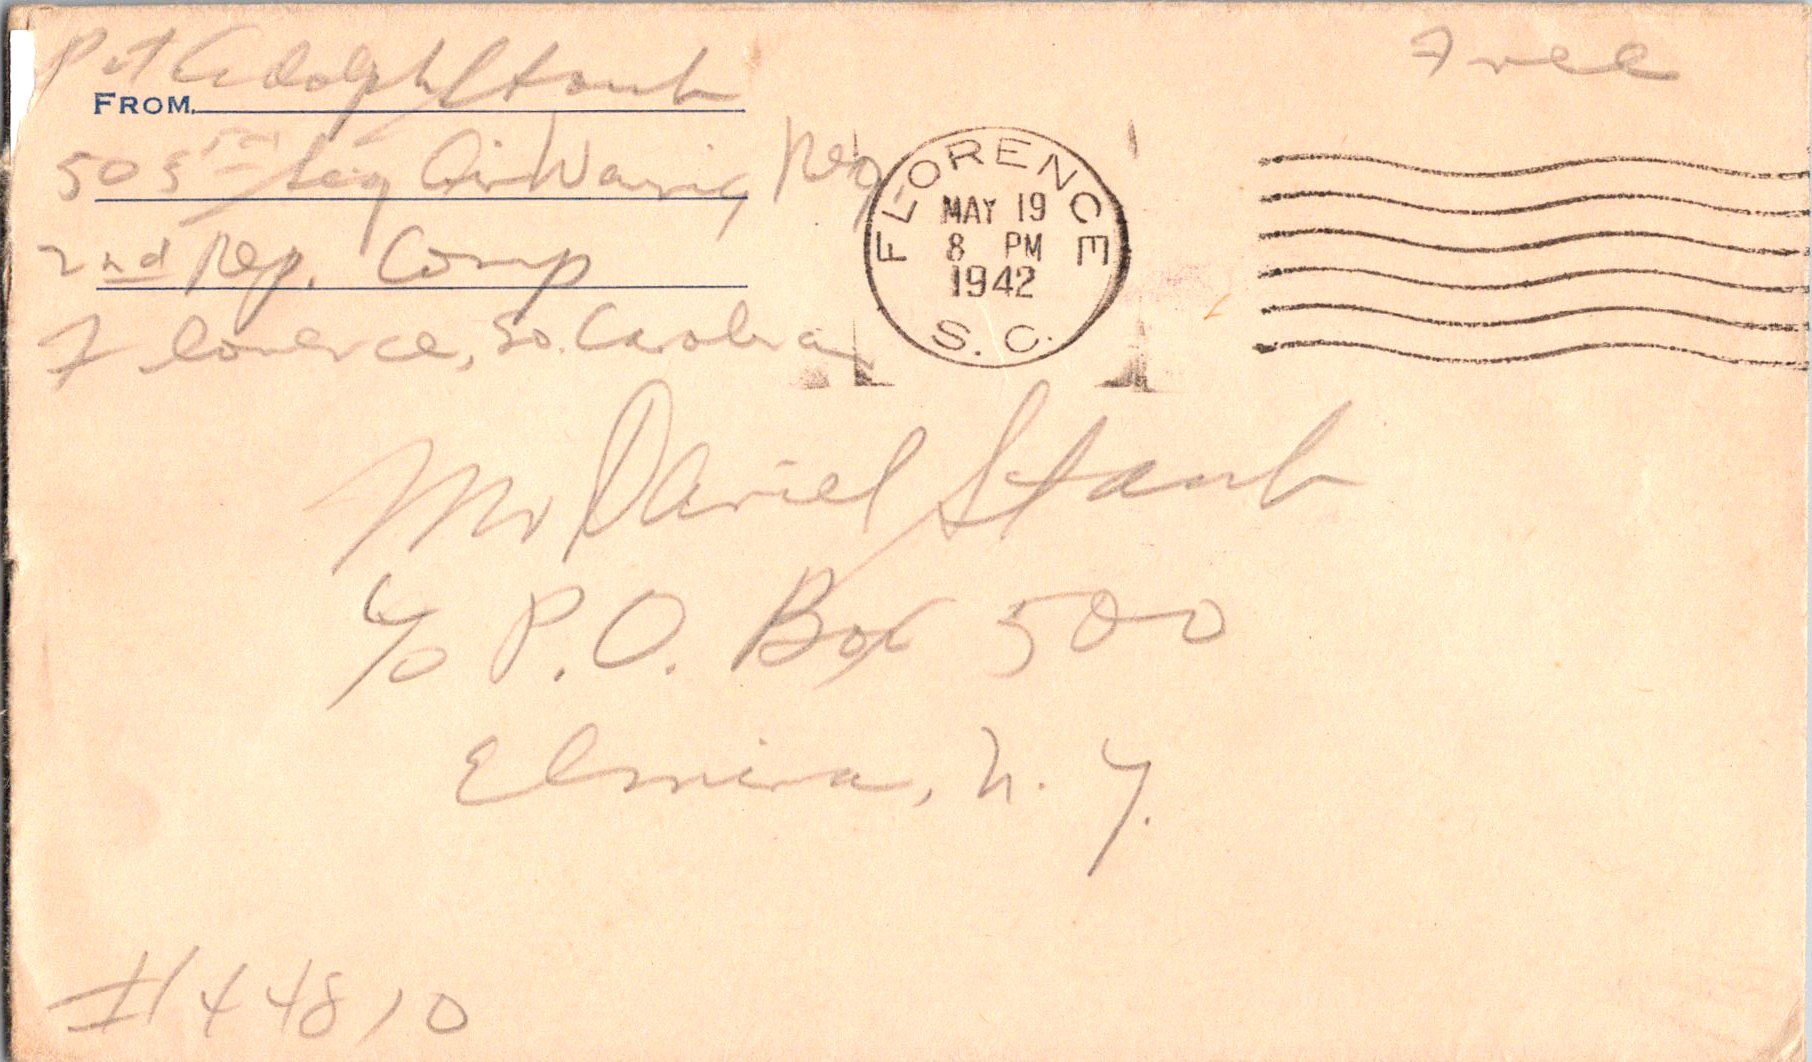 Pvt Adolph Staub
Free
FROM
503rd Sig Air Warnig Reg
2nd Rep. Comp
Florence, So. Carolina
FLORENCE
MAY 19
8 PM
1942
S. C.
Mr Daniel Staub
c/o P.O. Box 500
Elmira, N. Y.
#44810